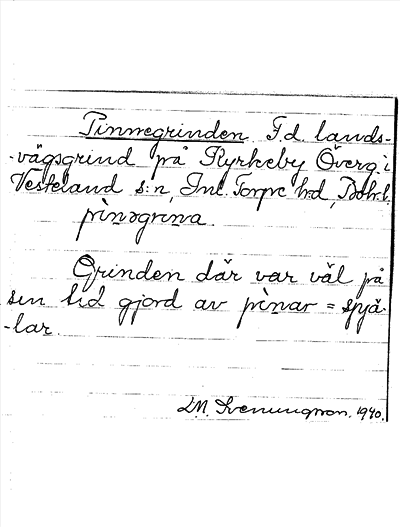 Pinnegrinden. F.d. lands-
-vägsgrind på Kyrkeby Överg. i
Vesteland s:n, Inl. Torpe h:d, Boh:l.
pìnəgrìna.
Grinden där var väl på
sin tid gjord av pìnar = spjä-
-lar.
D.M. Svenungsson. 1940.